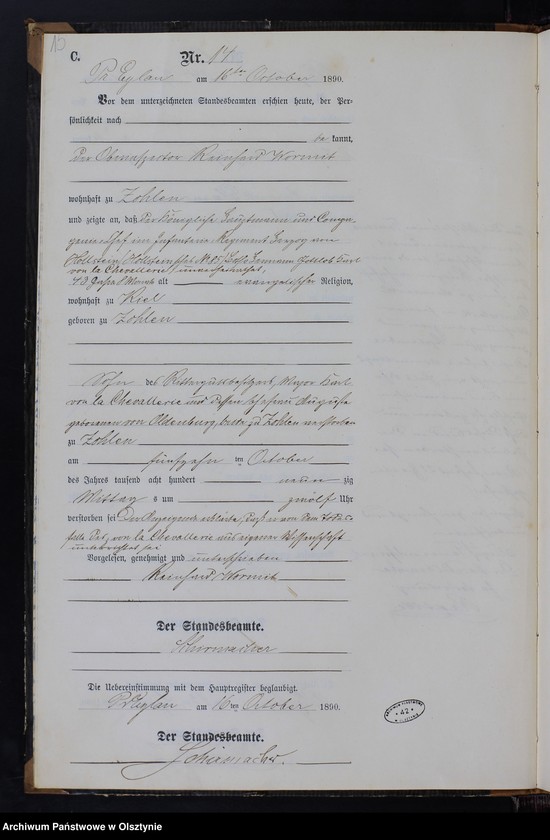 10
C.
Nr. 14
Pr. Eylau am 16ten October 1890.
Vor dem unterzeichneten Standesbeamten erschien heute, der Per-
sönlichkeit nach
be kannt,
Der Oberinspector Reinhard Wormit
wohnhaft zu Zohlen
und zeigte an, daß Der Königliche Hauptmann und Compa-
gniechef im Infanterie Regiment Herzog von
Holstein Hermann Gottlob Karl
von la Chevallerie, unverheirathet,
alt evangelischer Religion,
wohnhaft zu Kiel
geboren zu Zohlen
Sohn des Rittergutsbesitzers, Major Karl
von la Chevallerie und dessen Ehefrau Auguste
geborenen von Oldenburg, beide zu Zohlen verstorben
zu Zohlen
am fünfzehn ten October
des Jahres tausend acht hundert neun zig
Mittag s um zwölf Uhr
verstorben sei Der Anzeigende erklärte, daß er von dem Todes-
falle des von la Chevallerie aus eigener Wissenschaft
unterrichtet sei
Vorgelesen, genehmigt und unterschrieben
Reinhard Wormit
Der Standesbeamte.
Schirmacher
Die Uebereinstimmung mit dem Hauptregister beglaubigt.
Pr. Eylau am 16ten October 1890.
Der Standesbeamte.
Schirmacher.
ARCHIWUM PAŃSTWOWE
* 42 *
w OLSZTYNIE
Archiwum Państwowe w Olsztynie